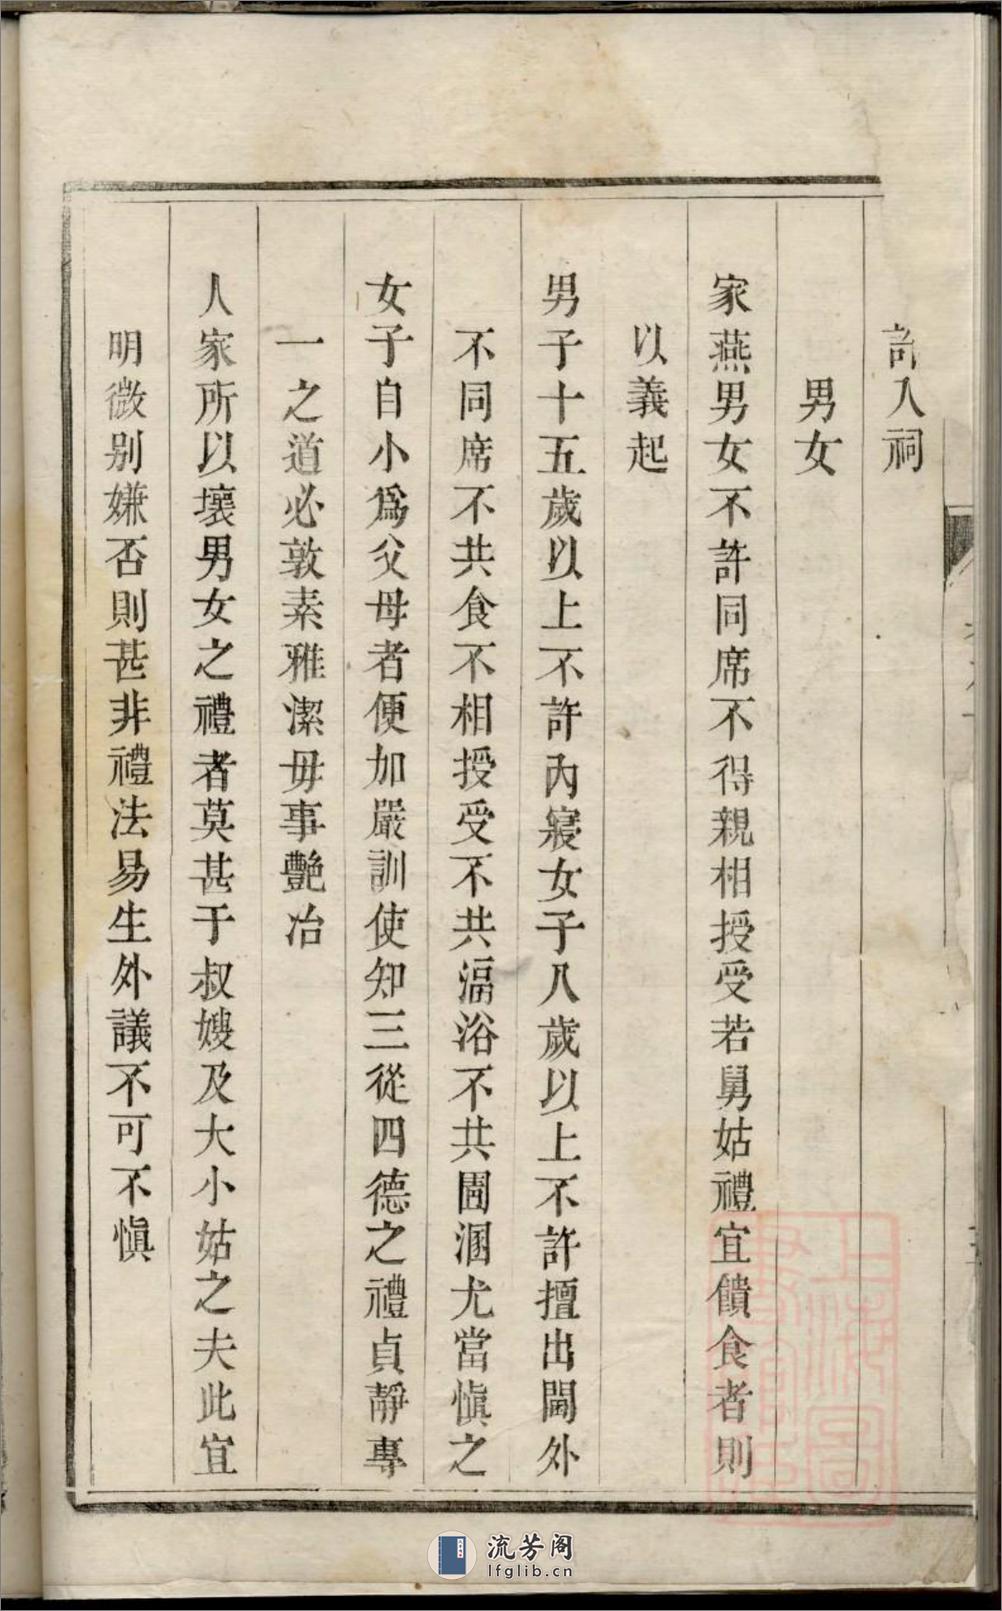 許入祠
男女
家燕男女不許同席不得親相授受若舅姑禮宜饋食者則
以義起
男子十五歲以上不許內寢女子八歲以上不許擅出閫外
不同席不共食不相授受不共湢浴不共圊溷尤當慎之
女子自小爲父母者便加嚴訓使知三從四德之禮貞靜專
一之道必敦素雅潔毋事艷冶
人家所以壞男女之禮者莫甚于叔嫂及大小姑之夫此宜
明微别嫌否則甚非禮法易生外議不可不慎
流芳阁
lfglib.cn